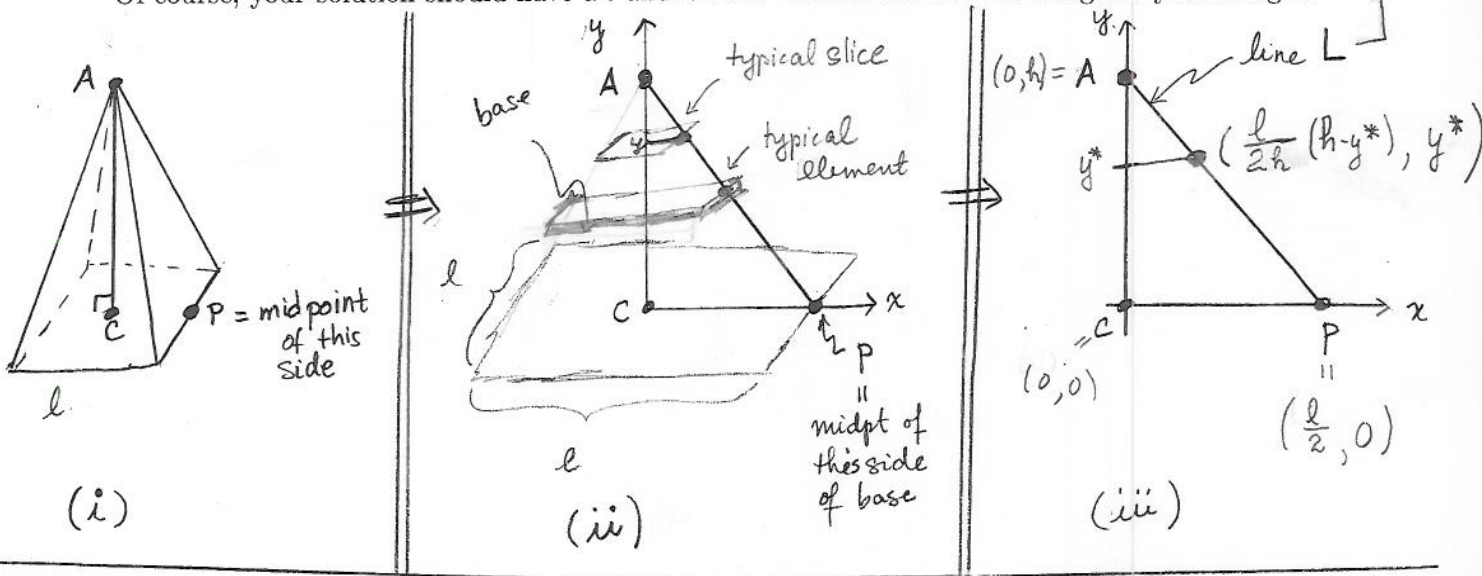 A
C
P = midpoint
of this
side
l
(i)
y
A
typical slice
base
y
typical
element
l
C
x
P
=
midpt of
this side
of base
l
(ii)
y
line L
(0,h) = A
y*
(l/2h (h-y*), y*)
C
x
=
(0,0)
P
=
(l/2, 0)
(iii)